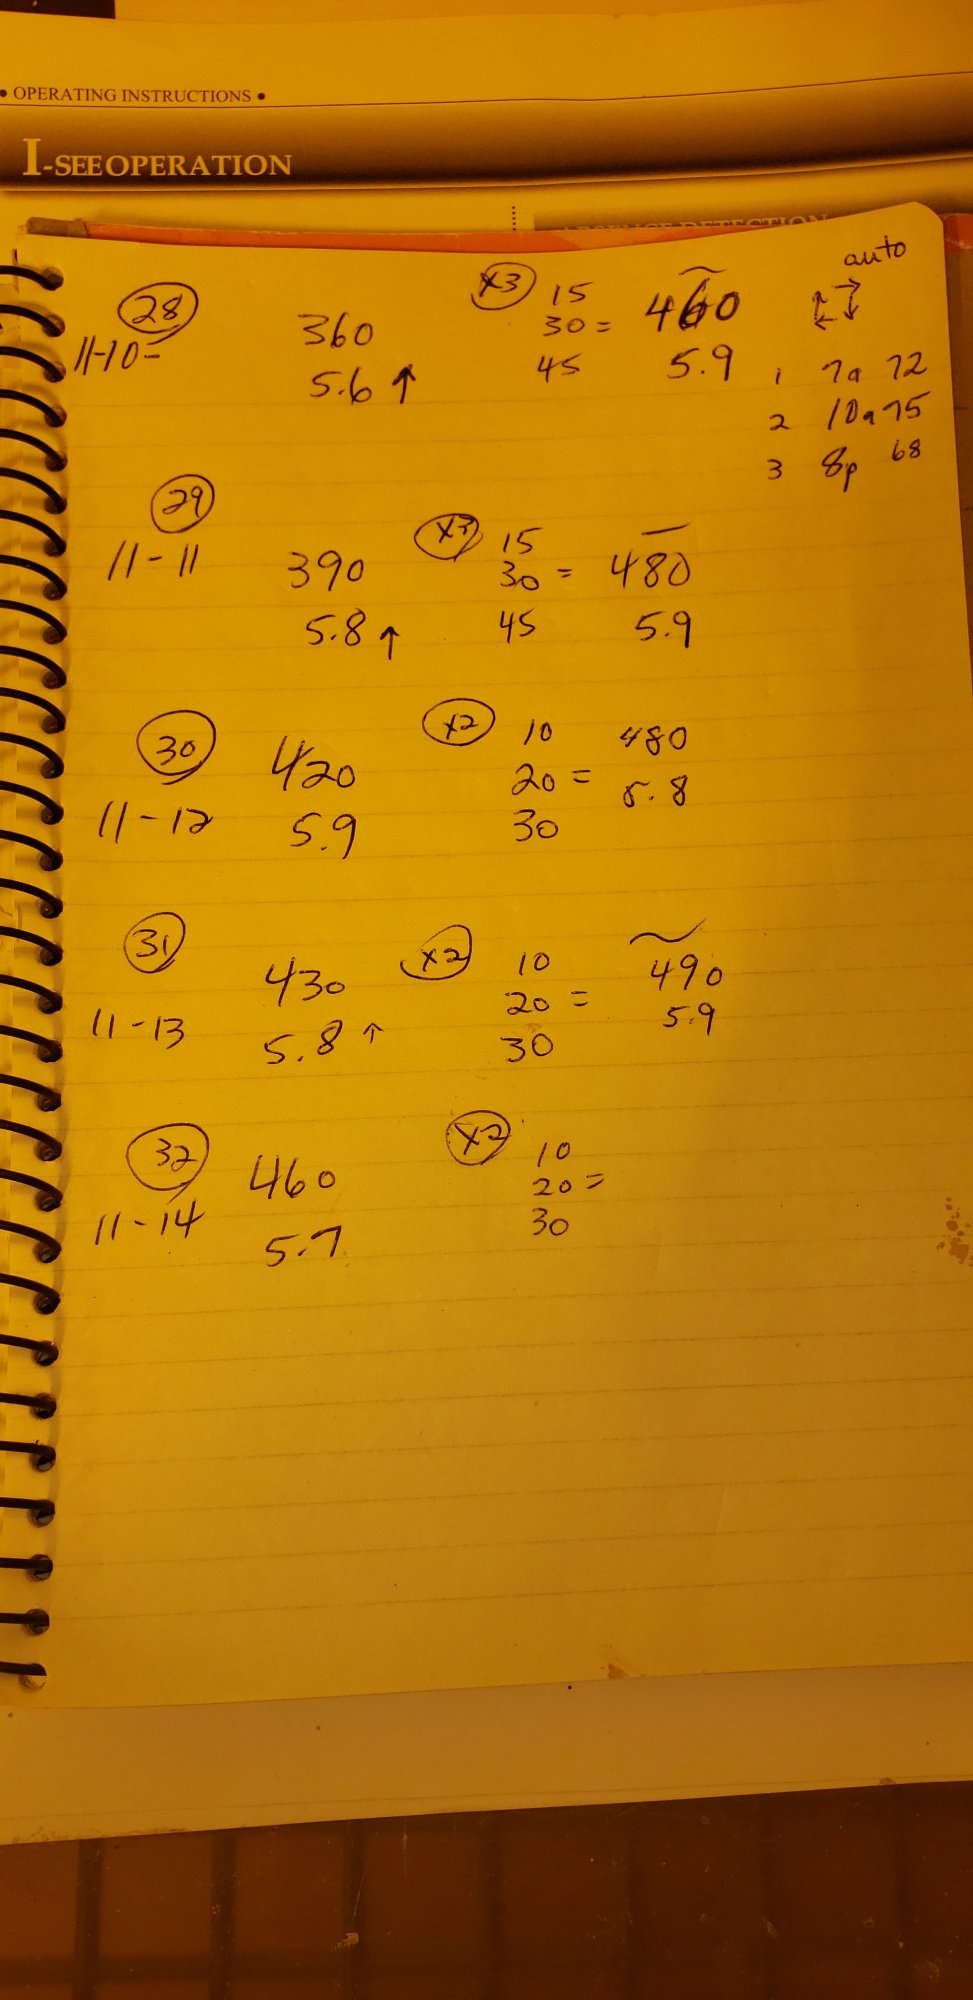 • OPERATING INSTRUCTIONS •
I-SEE OPERATION
ABSENCE DETECTION
auto
28
11-10-
360
5.6 ↑
x3
15
30 =
45
460
5.9
1 7a 72
2 10a 75
3 8p 68
29
11-11
390
5.8 ↑
x3
15
30 =
45
480
5.9
30
11-12
420
5.9
x2
10
20 =
30
480
5.8
31
11-13
430
5.8 ↑
x2
10
20 =
30
490
5.9
32
11-14
460
5.7
x2
10
20 =
30